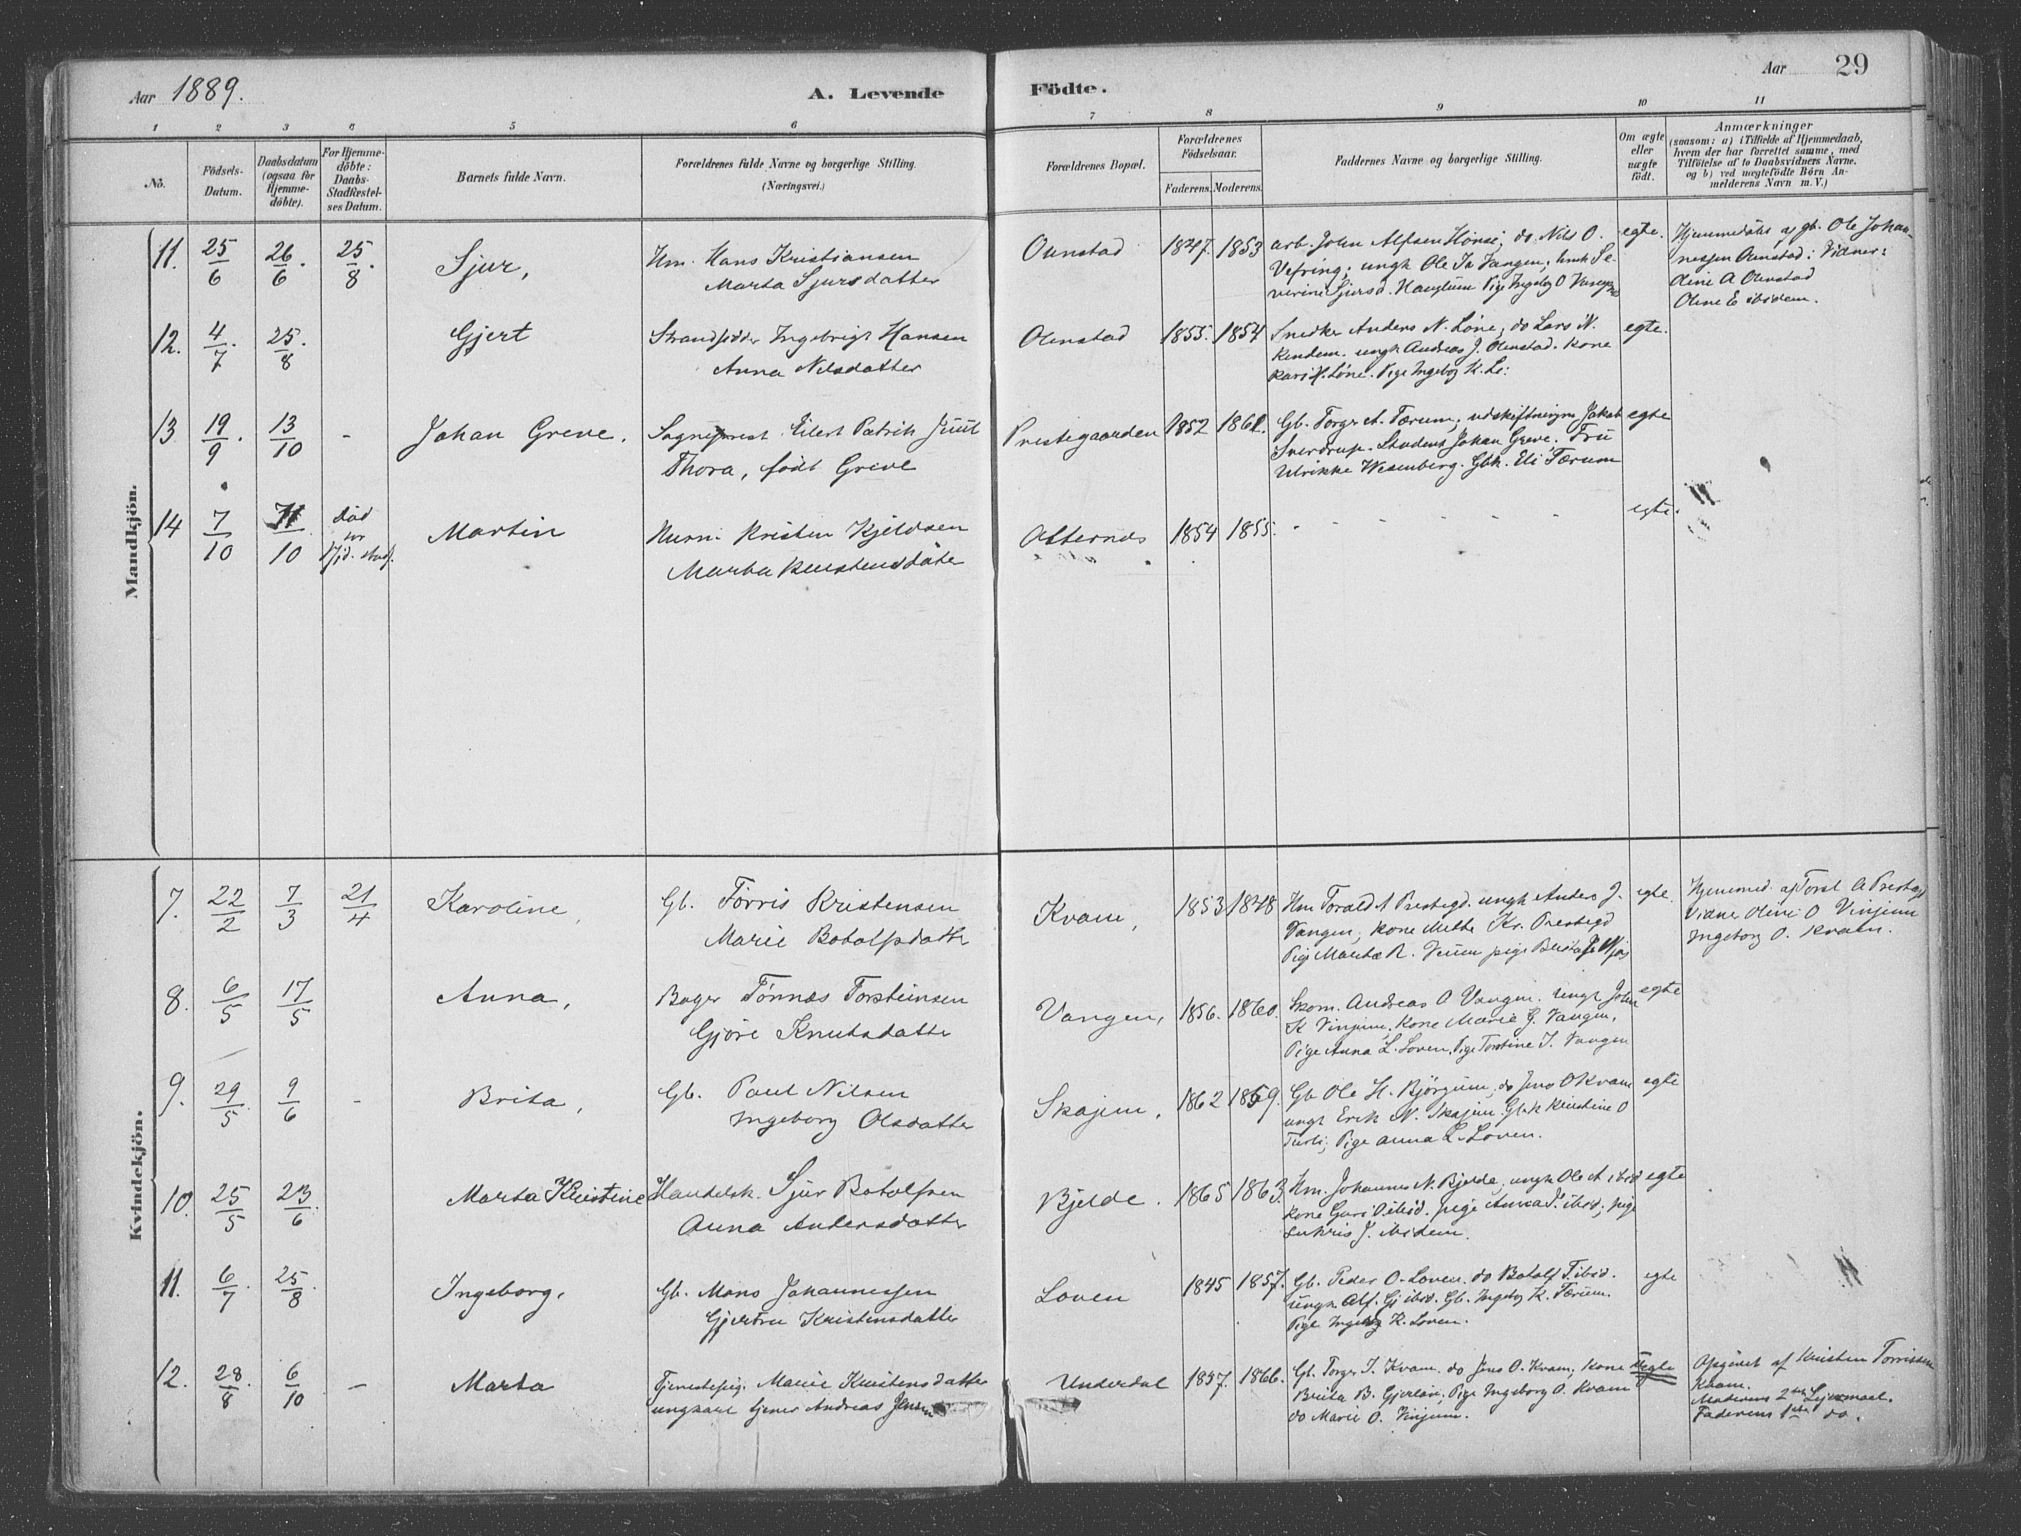 Aar 1889. A. Levende Födte. Aar 29
1 2 3 6 5 6 7 8 9 10 11
Nö. Födsels-Datum. Daabsdatum (ogsaa for Hjemme-döbte). For Hjemme-döbte: Daabs-Stadfæstel-ses Datum. Barnets fulde Navn. Forældrenes fulde Navne og borgerlige Stilling. (Næringsvei.) Forældrenes Bopæl. Forældrenes Födselsaar. Faderens. Moderens. Faddernes Navne og borgerlige Stilling. Om ægte eller uægte födt. Anmærkninger (saasom: a) i Tilfælde af Hjemmedaab, hvem der har forrettet samme, med Tilföielse af to Daabsvidners Navne. og b) ved uægtefödte Börn An-melderens Navn m. V.)
Mandkjön.
11. 25/6 26/6. 25/8. Sjur, Hm. Hans Kristiansen Ounstad 1847. 1853 arb. John Alfsen Hönsi; do Nils O. egte. Hjemmedöbt af gb. Ole Johan-
Marta Sjursdatter Vefring; ungk Ole Js Vangen; nessen Ounstad: Vidner:
verine Sjursd. Haugtun Pige Ingeborg O dine A Olenstad
Oline E ibidem.
12. 4/7. 25/8. Gjert Strandsidder Ingebrigt Hansen Olenstad 1855. 1854 Snedker Anders N. Löne; do Lars N. egte.
Anna Nilsdatter Rendem. ungk Andreas J. Olenstad. Kone
Kari N. Löne. Pige Ingeborg K. Li:
13 19/9. 13/10 - Johan Greve. Sogneprest Eilert Patrik Juul Prestegaarden 1852 1862. Gb. Torgr A. Færum; udskiftningsm Jakob egte
Thora, född Greve Sverdrup. Student Johan Greve. Fru
Ulrikke Wesenberg. Gbk. Eli Færum
14 7/10 /10 död for stadf. Martin Husm. Kristen Kjeldsen Otternes 1854 1855. - - - - - - egte.
Marta Kristensdater
Kvindekjön.
7. 22/2 7/3 21/4 Karoline, Gb. Törris Kristensen Kvam, 1853 1848 Hm Torald A Prestegd. ungk Anders J. egte. Hjemmed. af Torst A Prestegd
Marie Botolfsdattr Vangen; kone Metta Kr. Prestegd Vidne Oline O Vinjum
Pige Marta R. Veum pige Ingeborg O. Kvam.
8. 6/5 17/5 Anna, Bager Tönnes Torsteinsen Vangen, 1856. 1860. Skom. Andreas O Vangen. ungk John egte
Gjöre Knutsdattr K Vinjum, Kone Marie G. Vangen,
Pige Anna L. Loven, Pige Torstine J. Vangen
9. 29/5 9/6 - Brita, Gb. Paul Nilsen Skajem, 1862 1859. Gb Ole H. Björgum, do Jens O Kvam egte
Ingeborg Olsdatter ungk Erik N. Skajem. Gbk Kristine O
Turli; Pige Anna L. Loven.
10. 25/5 23/6. Marta Kristine Handelsk. Sjur Botolfsen Bjelde. 1865 1863. Hm. Johannes N. Bjelde; ungk Ole A ibid egte
Anna Andersdatter Kone Guri O ibid; pige Anna J. ibid; pige
Lukris J. ibidem.
11. 6/7. 25/8 Ingeborg, Gb. Mons Johannessen Loven 1845 1857. Gb. Peder O. Loven. do Botolf T. ibid. egte
Gjertru Kristensdatter Ungk Alf. Gj ibid. Gb. Ingeborg K. Færum.
Pige Ingeborg K. Loven.
12. 28/8 6/10 - Marta Tjenestepig. Marie Kristensdatter Underdal 1857. 1866. Gb. Torgr J. Kvam. do Jens O. Kvam; Kone uegte Opgivet af Kristen Torrissen
ungkarl tjener Andreas Jensen Brita B. Gjerlöv; Pige Ingeborg O. Kvam Kvam.
do Marie O. Vinjum. Moderens 2det Lejermaal.
Faderens 1ste do.